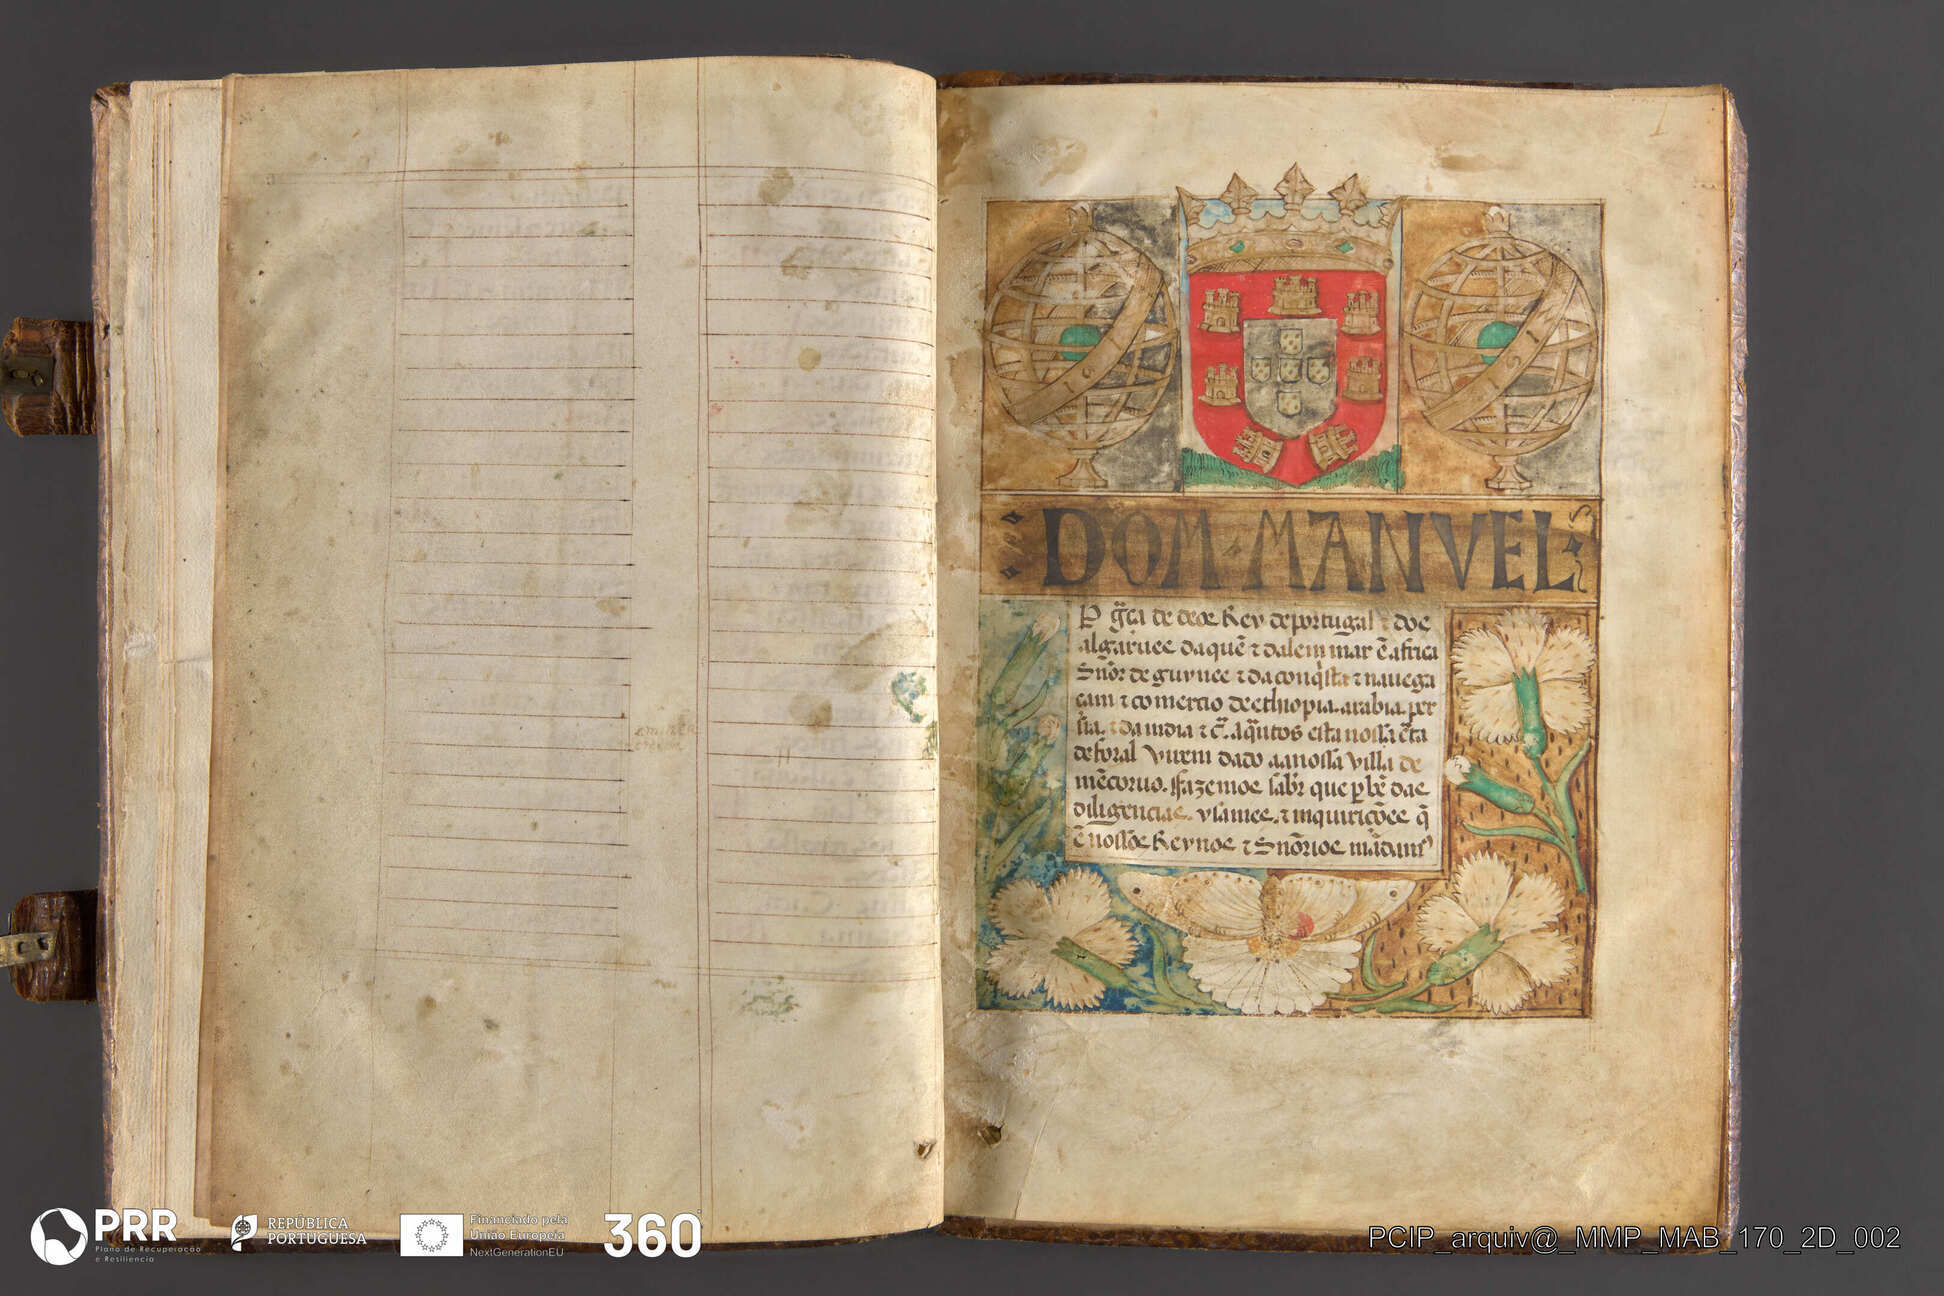 1
1 6 1 1
1 6 1 1
DOM MANVEL
P gͣça de deos Rey de portugal ⁊ dos
algarues daquẽ ⁊ dalem mar ẽ africa
Sñor de guynee ⁊ da conq̃sta ⁊ nauega
çam ⁊ comercio de ethiopia. arabia. per
sia. ⁊ da india ⁊ c̃. Aq̃ntos esta nossa c̃ta
de foral virem dado aa nossa villa de
mẽcoruo. ffazemos sabr̃ que ꝑ bẽ das
diligencias. ysames. ⁊ inquiriçõees q̃
ẽ nossos Reynos ⁊ Sñorios mãdam
PRR
Plano de Recuperação
e Resiliência
REPÚBLICA
PORTUGUESA
Financiado pela
União Europeia
NextGenerationEU
360°
PCIP_arquiv@_MMP_MAB_170_2D_002